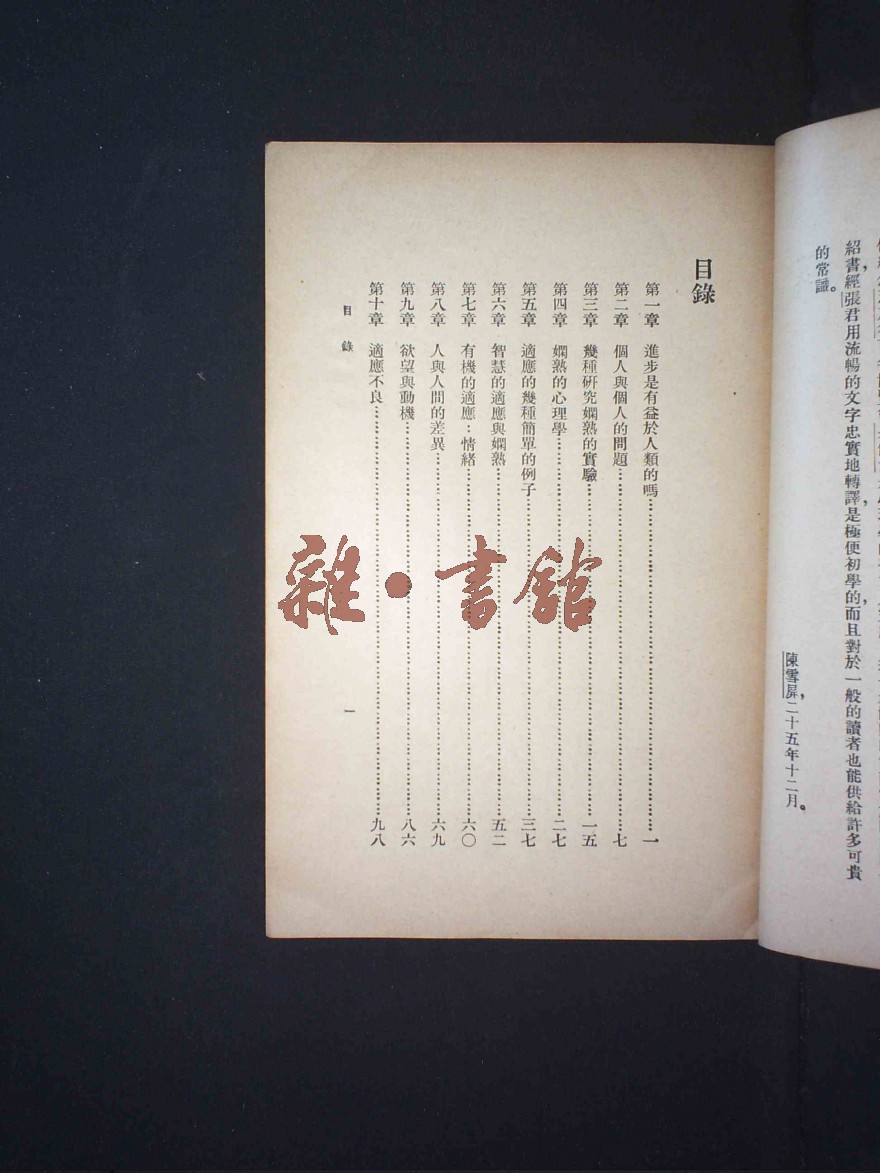 紹書，經張君用流暢的文字忠實地轉譯，是極便初學的，而且對於一般的讀者也能供給許多可貴
的常識。
陳雪屏，二十五年十二月。
目錄
第一章 進步是有益於人類的嗎……一
第二章 個人與個人的問題……七
第三章 幾種研究嫻熟的實驗……一五
第四章 嫻熟的心理學……二七
第五章 適應的幾種簡單的例子……三七
第六章 智慧的適應與嫻熟……五二
第七章 有機的適應：情緒……六〇
第八章 人與人間的差異……六九
第九章 欲望與動機……八六
第十章 適應不良……九八
目錄
一
雜·書館